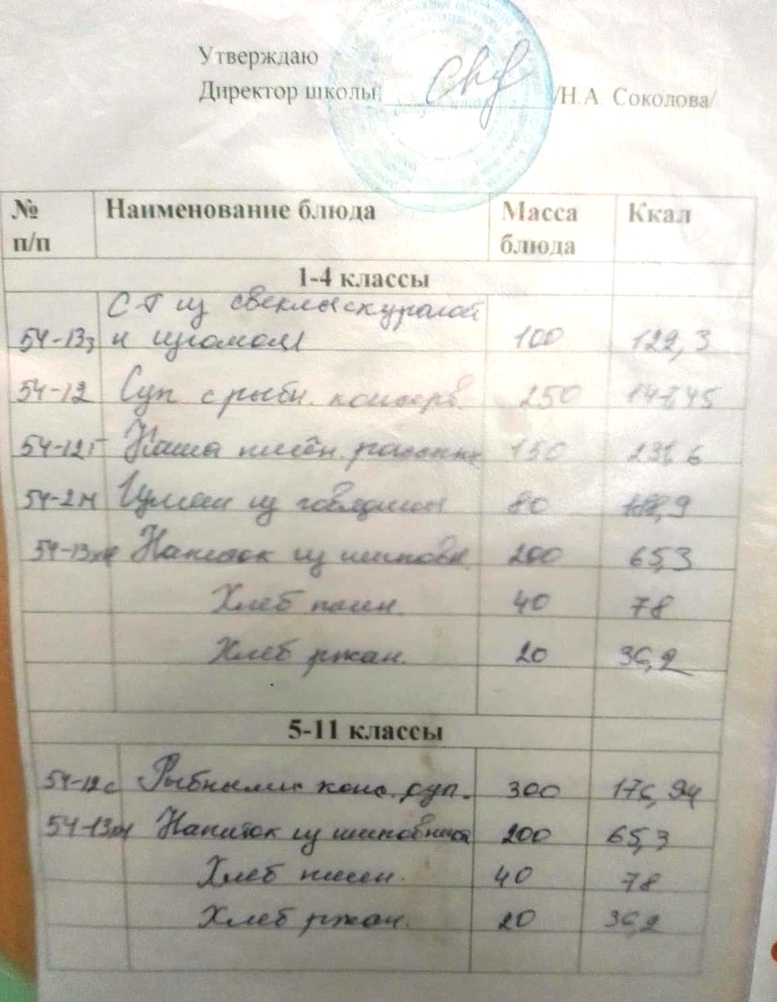 Утверждаю
Директор школы /Н.А. Соколова/
№ п/п Наименование блюда Масса блюда Ккал
1-4 классы
СГ из свеклы с курагой
54-13з и изюмом 100 129,3
54-12 Суп с рыбн. консерв. 250 147,45
54-12г Каша пшён. рассыпч 150 231,6
54-2м Гуляш из говядины 80
54-13хн Напиток из шиповн. 200 65,3
Хлеб пшен. 40 78
Хлеб ржан. 20 36,2
5-11 классы
54-12с Рыбными конс. суп. 300 176,94
54-13хн Напиток из шиповника 200 65,3
Хлеб пшен. 40 78
Хлеб ржан. 20 36,2